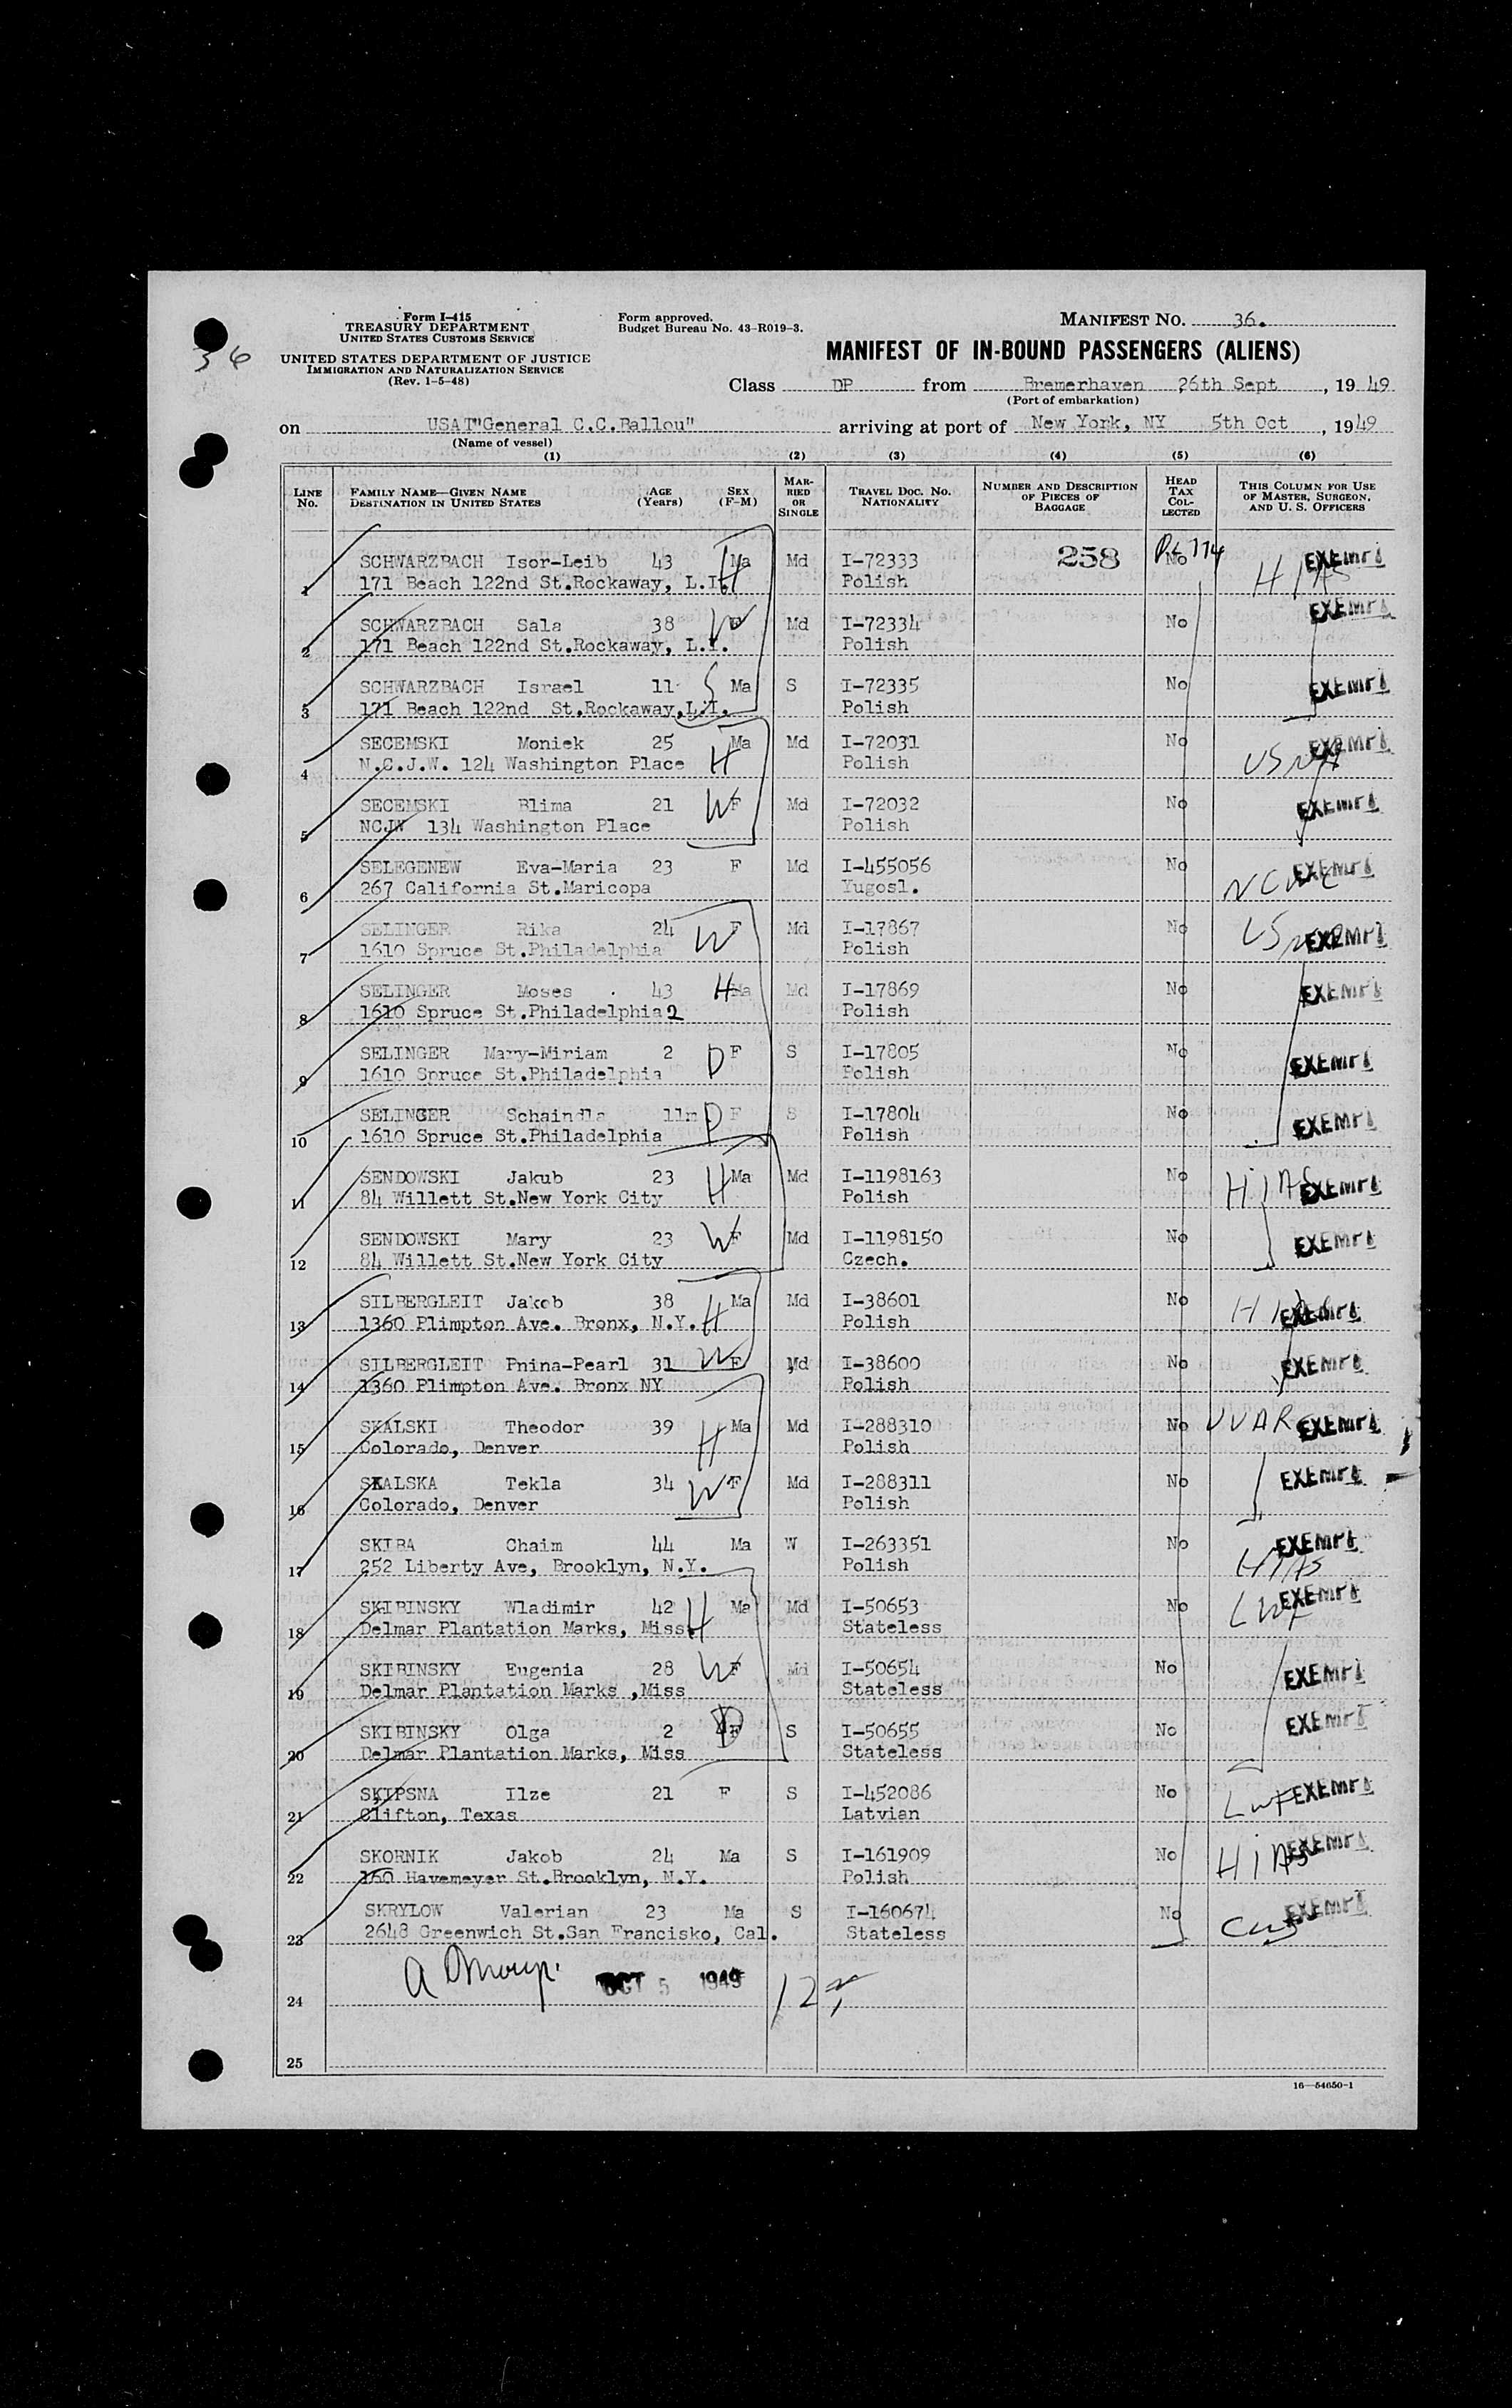 36
Form I-415
TREASURY DEPARTMENT
UNITED STATES CUSTOMS SERVICE
UNITED STATES DEPARTMENT OF JUSTICE
IMMIGRATION AND NATURALIZATION SERVICE
(Rev. 1-5-48)
Form approved.
Budget Bureau No. 43-R019-3.
MANIFEST NO. 36.
MANIFEST OF IN-BOUND PASSENGERS (ALIENS)
Class DP from Bremerhaven 26th Sept, 1949
(Port of embarkation)
on USAT"General C.C.Ballou" arriving at port of New York, NY 5th Oct, 1949
(Name of vessel)
(1) (2) (3) (4) (5) (6)
LINE No. FAMILY NAME—GIVEN NAME DESTINATION IN UNITED STATES AGE (Years) SEX (F-M) MARRIED OR SINGLE TRAVEL DOC. NO. NATIONALITY NUMBER AND DESCRIPTION OF PIECES OF BAGGAGE HEAD TAX COLLECTED THIS COLUMN FOR USE OF MASTER, SURGEON, AND U. S. OFFICERS
1 SCHWARZBACH Isor-Leib 43 Ma H Md I-72333 258 No HIAS EXEMPT
171 Beach 122nd St.Rockaway, L.I. Polish
2 SCHWARZBACH Sala 38 W F Md I-72334 No EXEMPT
171 Beach 122nd St.Rockaway, L.I. Polish
3 SCHWARZBACH Israel 11 S Ma S I-72335 No EXEMPT
171 Beach 122nd St.Rockaway,L.I. Polish
4 SECEMSKI Moniek 25 H Ma Md I-72031 No USNA EXEMPT
N.C.J.W. 124 Washington Place Polish
5 SECEMSKI Blima 21 W F Md I-72032 No EXEMPT
NCJW 134 Washington Place Polish
6 SELEGENEW Eva-Maria 23 F Md I-455056 No NCWC EXEMPT
267 California St.Maricopa Yugosl.
7 SELINGER Rika 24 W F Md I-17867 No USNA EXEMPT
1610 Spruce St.Philadelphia Polish
8 SELINGER Moses 43 H Ma Md I-17869 No EXEMPT
1610 Spruce St.Philadelphia2 Polish
9 SELINGER Mary-Miriam 2 D F S I-17805 No EXEMPT
1610 Spruce St.Philadelphia Polish
10 SELINGER Schaindla 11m D F S I-17804 No EXEMPT
1610 Spruce St.Philadelphia Polish
11 SENDOWSKI Jakub 23 H Ma Md I-1198163 No HIAS EXEMPT
84 Willett St.New York City Polish
12 SENDOWSKI Mary 23 W F Md I-1198150 No EXEMPT
84 Willett St.New York City Czech.
13 SILBERGLEIT Jakob 38 H Ma Md I-38601 No HIAS EXEMPT
1360 Plimpton Ave. Bronx, N.Y. Polish
14 SILBERGLEIT Pnina-Pearl 31 W F Md I-38600 No EXEMPT
1360 Plimpton Ave. Bronx NY Polish
15 SKALSKI Theodor 39 H Ma Md I-288310 No UUAR EXEMPT
Colorado, Denver Polish
16 SKALSKA Tekla 34 W F Md I-288311 No EXEMPT
Colorado, Denver Polish
17 SKIBA Chaim 44 Ma W I-263351 No HIAS EXEMPT
252 Liberty Ave, Brooklyn, N.Y. Polish
18 SKIBINSKY Wladimir 42 H Ma Md I-50653 No LWF EXEMPT
Delmar Plantation Marks, Miss Stateless
19 SKIBINSKY Eugenia 28 W F Md I-50654 No EXEMPT
Delmar Plantation Marks ,Miss Stateless
20 SKIBINSKY Olga 2 D F S I-50655 No EXEMPT
Delmar Plantation Marks, Miss Stateless
21 SKIPSNA Ilze 21 F S I-452086 No LWF EXEMPT
Clifton, Texas Latvian
22 SKORNIK Jakob 24 Ma S I-161909 No HIAS EXEMPT
160 Havemeyer St.Brooklyn, N.Y. Polish
23 SKRYLOW Valerian 23 Ma S I-160674 No CWS EXEMPT
2648 Greenwich St.San Francisko, Cal. Stateless
24 OCT 5 1949
25
16—54650-1